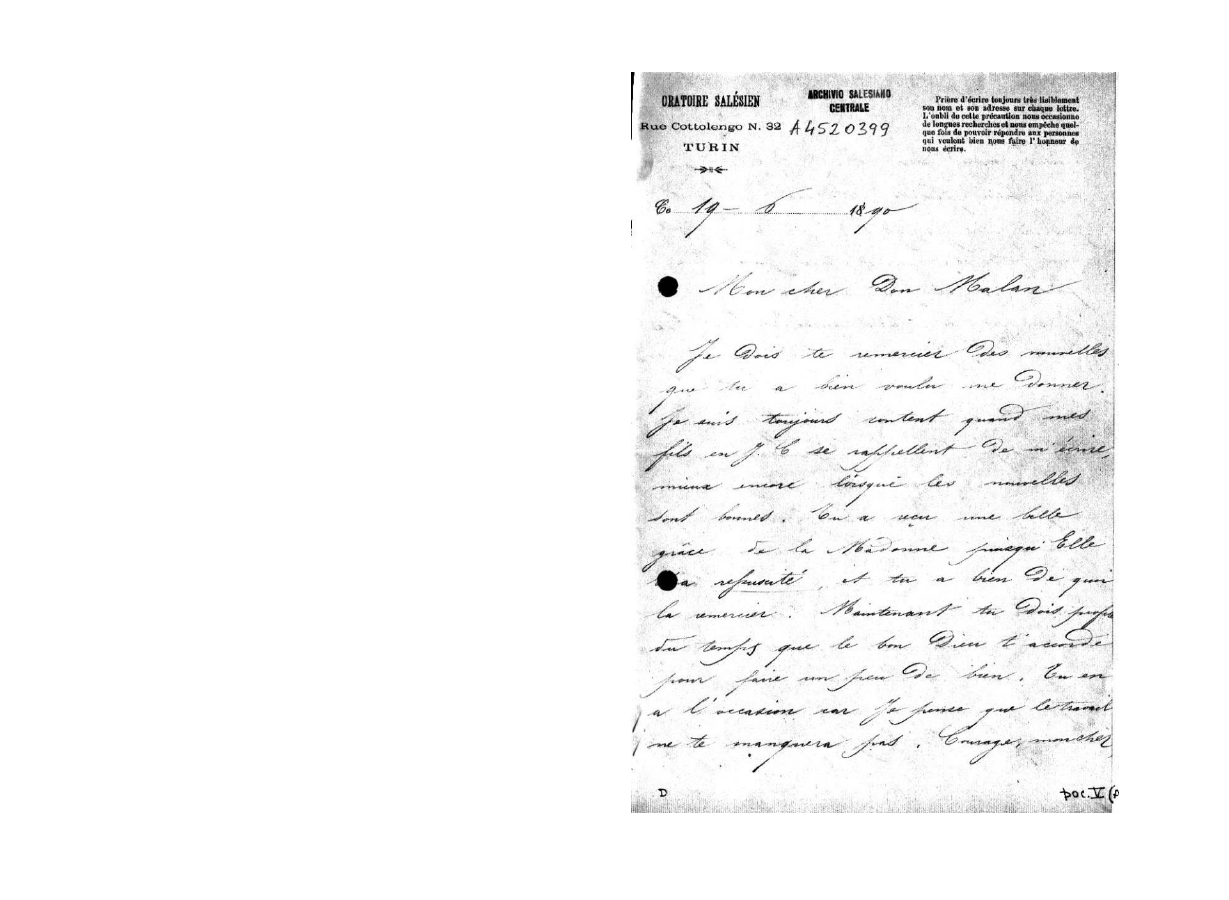 ORATOIRE SALÉSIEN
Rue Cottolengo N. 32
TURIN
ARCHIVIO SALESIANO
CENTRALE
A4520399
Prière d'écrire toujours très lisiblement
son nom et son adresse sur chaque lettre.
L'oubli de cette précaution nous occasionne
de longues recherches et nous empêche quel-
que fois de pouvoir répondre aux personnes
qui veulent bien nous faire l'honneur de
nous écrire.
19 - 6 1890
Mon cher Don Malan
Je dois te remercier des nouvelles
que tu a bien voulu me donner.
Je suis toujours content quand mes
fils en J. C se rappellent de m'écrire,
mieux encore lorsque les nouvelles
sont bonnes. Tu a reçu une belle
grâce de la Madonne puisqu'Elle
t'a ressuscité, et tu a bien de quoi
la remercier. Maintenant tu dois
du temps que le bon Dieu t'accorde
pour faire un peu de bien. Tu en
a l'occasion car Je pense que le travail
ne te manquera pas. Courage, mon cher,
D
poc. V (